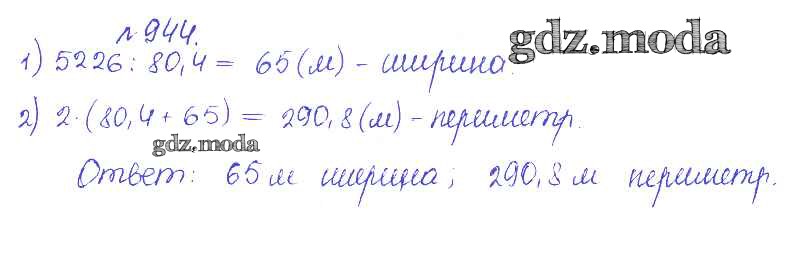 № 944.
1) 5226 : 80,4 = 65 (м) - ширина.
gdz.moda
2) 2·(80,4 + 65) = 290,8 (м) - периметр.
gdz.moda
Ответ: 65 м ширина; 290,8 м периметр.